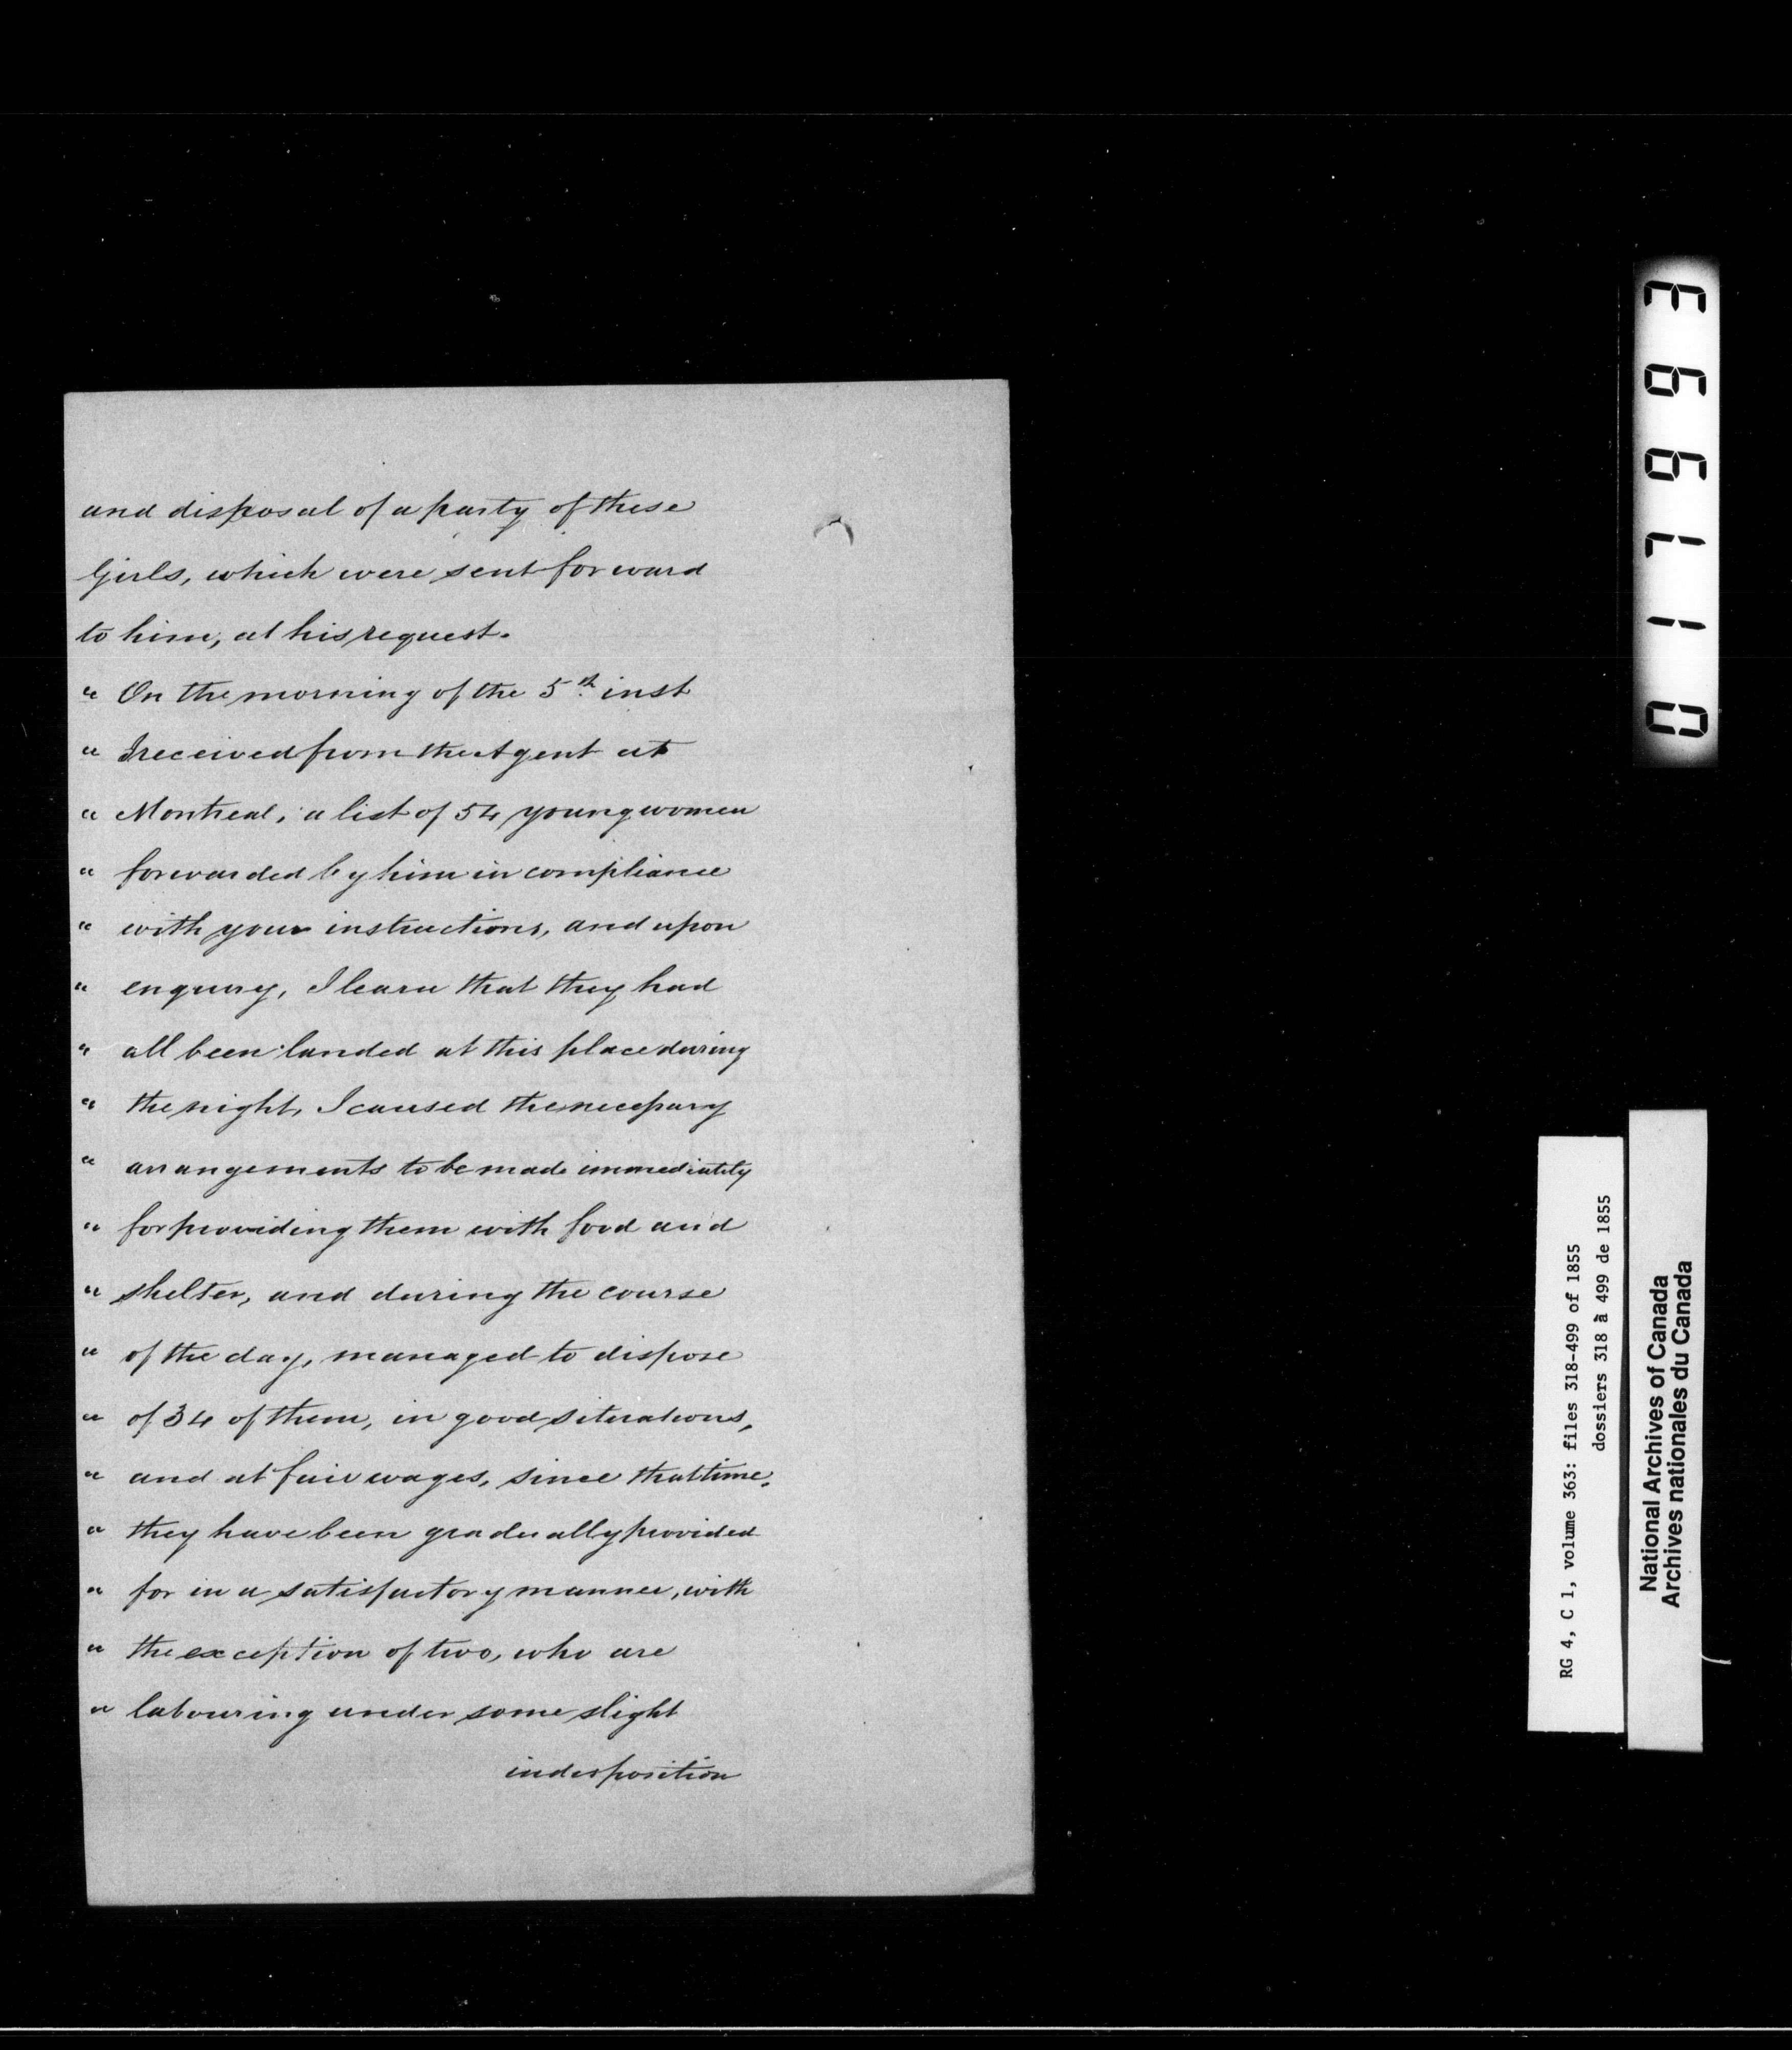 and disposal of a party of these
Girls, which were sent forward
to him, at his request.
" On the morning of the 5th inst
" I received from the Agent at
" Montreal, a list of 54 young women
" forwarded by him in compliance
" with your instructions, and upon
" enquiry, I learn that they had
" all been landed at this place during
" the night, I caused the necessary
" arrangements to be made immediately
" for providing them with food and
" shelter, and during the course
" of the day, managed to dispose
" of 34 of them, in good situations,
" and at fair wages, since that time,
" they have been gradually provided
" for in a satisfactory manner, with
" the exception of two, who are
" labouring under some slight
indisposition
017993
RG 4, C 1, volume 363: files 318-499 of 1855
dossiers 318 à 499 de 1855
National Archives of Canada
Archives nationales du Canada